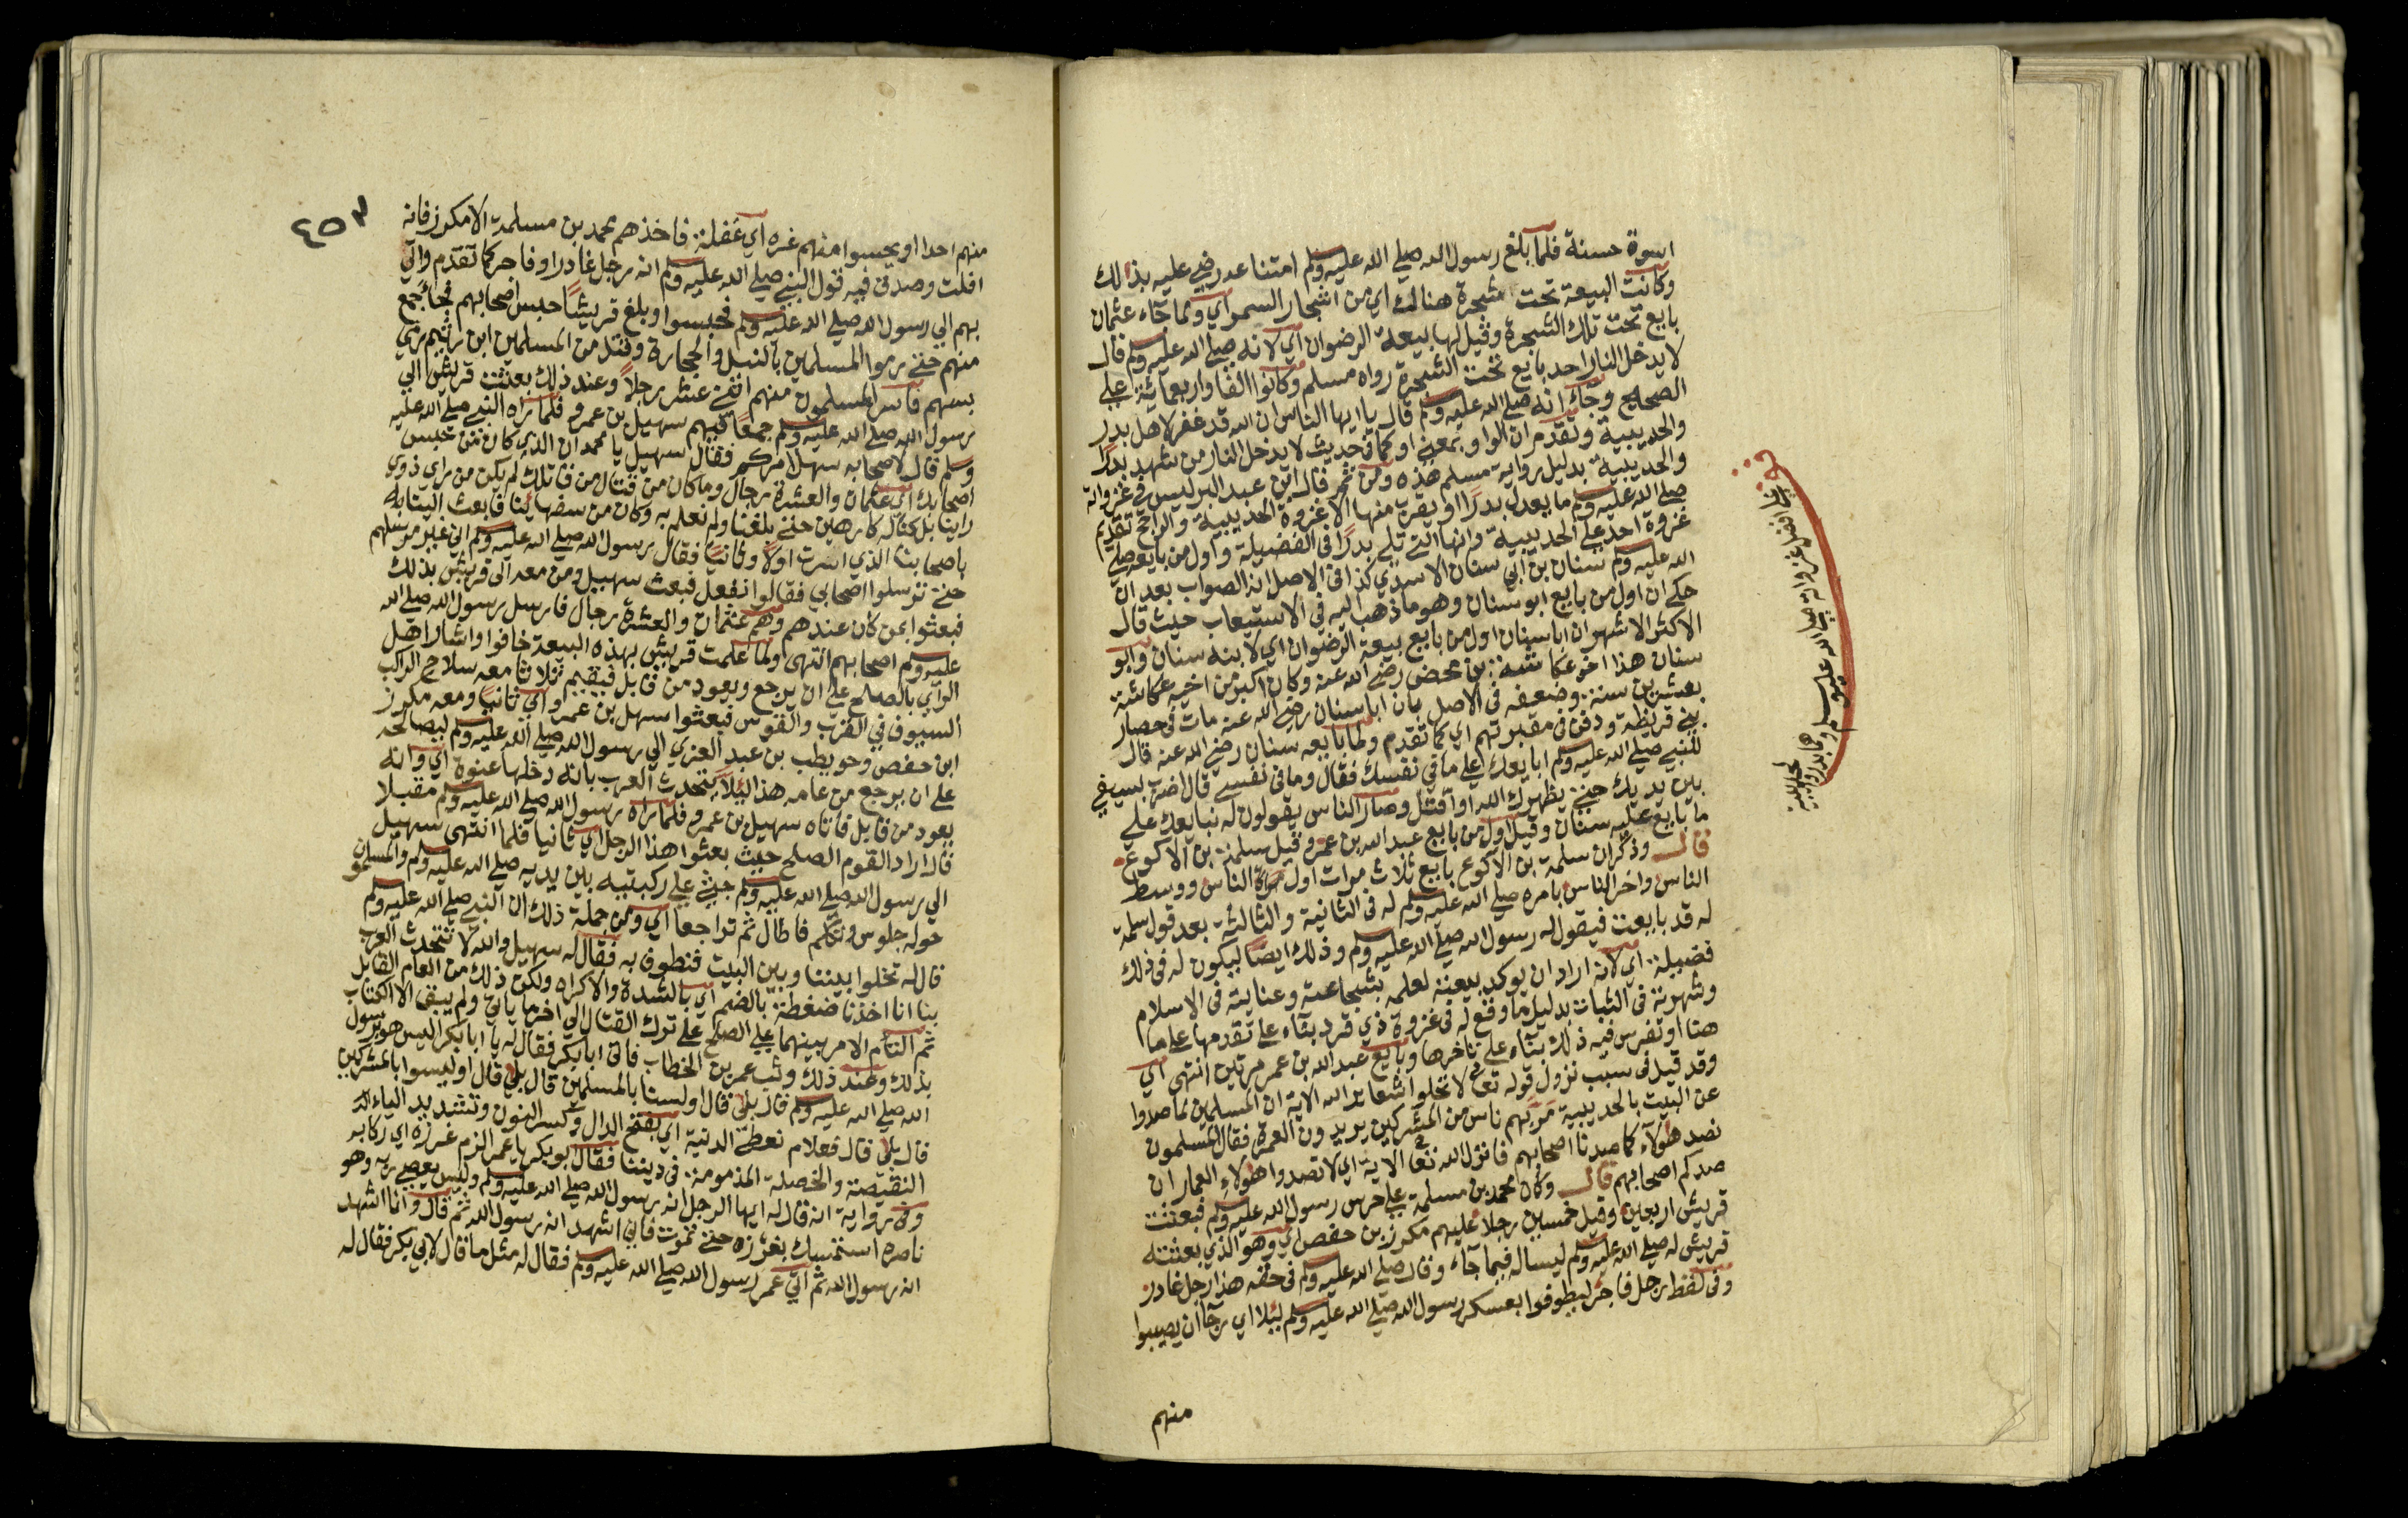 اسوة حسنة فلما بلغ رسول الله صلي الله عليه وسلم امتناعه رضي عليه بذلك
وكانت البيعة تحت شجرة هنالك اي من اشجار السمر اي ولما جاء عثمان
بايع تحت تلك الشجرة وقيل لها بيعة الرضوان اي لانه صلي الله عليه وسلم قال
لا يدخل النار احد بايع تحت الشجرة رواه مسلم وكانوا الفا واربعمائة علي
الصحيح وجاء انه صلي الله عليه وسلم قال يا ايها الناس ان الله قد غفر لاهل بدر
والحديبية وتقدم ان الواو بمعني او كما في حديث لا يدخل النار من شهد بدرا
والحديبية بدليل رواية مسلم هذه ومن ثم قال ابن عبد البر ليس في غزواته
صلي الله عليه وسلم ما يعدل بدرا او يقرب منها الا غزوة الحديبية والراجح تقديم
غزوة احد علي الحديبية وانها التي تلي بدرا في الفضيلة واول من بايعه صلي
الله عليه وسلم سنان بن ابي سنان الاسدي كذا في الاصل انه الصواب بعد ان
حكي ان اول من بايع ابو سنان وهو ما ذهب اليه في الاستيعاب حيث قال
الاكثر الاشهر ان ابا سنان اول من بايع بيعة الرضوان اي لابنه سنان وابو
سنان هذا اخو عكاشة بن محصن رضي الله عنه وكان اكبر من اخيه عكاشة
بعشرين سنة وضعفه في الاصل بان ابا سنان رضي الله عنه مات في حصار
بني قريظة ودفن في مقبرتهم اي كما تقدم ولما بايعه سنان رضي الله عنه قال
للنبي صلي الله عليه وسلم ابايعك علي ما في نفسك فقال وما في نفسي قال اضرب بسيفي
بين يديك حتي يظهرك الله او اقتل وصار الناس يقولون له نبايعك علي
ما بايع عليه سنان وقيل اول من بايع عبد الله بن عمر وقيل سلمة بن الاكوع
قال وذكر ان سلمة بن الاكوع بايع ثلاث مرات اول مرة الناس ووسط
الناس واخر الناس بامره صلي الله عليه وسلم له في الثانية والثالثة بعد قول سلمة
له قد بايعت فيقول له رسول الله صلي الله عليه وسلم وذلك ايضا ليكون له في ذلك
فضيلة اي لانه اراد ان يوكد بيعته لعلمه بشجاعته وعنايته في الاسلام
وشهرته في الثبات بدليل ما وقع له في غزوة ذي قرد بناء علي تقدمها علي ما
هنا او تفرس فيه ذلك بناء علي تاخرها وبايع عبد الله بن عمر مرتين انتهي اي
وقد قيل في سبب نزول قوله تعالى لا تحلوا شعاير الله الاية ان المسلمين لما صدوا
عن البيت بالحديبية مر بهم ناس من المشركين يريدون العمرة فقال المسلمون
نصد هؤلاء كما صدنا اصحابهم فانزل الله تعالى الاية اي لا تصدوا هولاء العمار ان
صدكم اصحابهم قال وكان محمد بن مسلمة علي حرس رسول الله عليه وسلم فبعثت
قريش اربعين وقيل خمسين رجلا عليهم مكرز بن حفص اي وهو الذي بعثته
قريش له صلي الله عليه وسلم ليساله فيما جاء وقال صلي الله عليه وسلم في حقه هذا رجل غادر
وفي لفظ رجل فاجر ليطوفوا بعسكر رسول الله صلي الله عليه وسلم ليلا اي رجا ان يصيبوا
منهم
افضل غزواته صلي الله عليه وسلم
٤٥٣
منهم احدا او يحبسوا منهم غره اي غفلة فاخذهم محمد بن مسلمة الا مكرز فانه
افلت وصدق فيه قول النبي صلي الله عليه وسلم انه رجل غادر او فاجر كما تقدم واتي
بهم الي رسول الله صلي الله عليه وسلم فحبسوا وبلغ قريشا حبس اصحابهم فجا جمع
منهم حتي رموا المسلمين بالنبل والحجارة وقتل من المسلمين ابن زنيم رمي
بسهم فاسر المسلمون منهم اثني عشر رجلا وعند ذلك بعثت قريش الي
رسول الله صلي الله عليه وسلم جمعا فيهم سهيل بن عمرو فلما راه النبي صلي الله عليه
وسلم قال لاصحابه سهل امركم فقال سهيل يا محمد ان الذي كان من حبس
اصحابك اي عثمان والعشرة رجال وما كان من قتال من قاتلك لم يكن من راي ذوي
راينا بل كنا له كارهين حتي بلغنا ولم نعلم به وكان من سفهاينا فابعث الينا
باصحابنا الذي اسرت اولا وثانيا فقال رسول الله صلي الله عليه وسلم اني غير مرسلهم
حتي ترسلوا اصحابي فقالوا نفعل فبعث سهيل ومن معه الي قريش بذلك
فبعثوا بمن كان عندهم وهم عثمان والعشرة رجال فارسل رسول الله صلي الله
عليه وسلم اصحابهم انتهي ولما علمت قريش بهذه البيعة خافوا واشار اهل
الراي بالصلح علي ان يرجع ويعود من قابل فيقيم ثلاثا معه سلاح الراكب
السيوف في القرب والقوس فبعثوا سهيل بن عمرو اي ثانيا ومعه مكرز
ابن حفص وحويطب بن عبد العزي الي رسول الله صلي الله عليه وسلم ليصالحه
علي ان يرجع من عامه هذا ليلا تتحدث العرب بانه دخلها عنوة اي وانه
يعود من قابل فاتاه سهيل بن عمرو فلما راه رسول الله صلي الله عليه وسلم مقبلا
قال اراد القوم الصلح حيث بعثوا هذا الرجل اي ثانيا فلما انتهي سهيل
الي رسول الله صلي الله عليه وسلم جثي علي ركبتيه بين يديه صلي الله عليه وسلم والمسلمون
حوله جلوس وتكلم فاطال ثم تراجعا اي ومن جملة ذلك ان النبي صلي الله عليه وسلم
قال له تخلوا بيننا وبين البيت فنطوف به فقال له سهيل والله لا تتحدث العرب
بنا انا اخذنا ضغطة بالضم اي بالشدة والاكراه ولكن ذلك من العام القابل
ثم التام الامر بينهما علي الصلح علي ترك القتال الي اخر ما ياتي ولم يبق الا الكتاب
بذلك وعند ذلك وثب عمر بن الخطاب فاتي ابا بكر فقال له يا ابا بكر اليس هو برسول
الله صلي الله عليه وسلم قال بلي قال اولسنا بالمسلمين قال بلي قال اوليسوا بالمشركين
قال بلي قال فعلام نعطي الدنية اي بفتح الدال وكسر النون وتشديد الياء
النقيصة والخصلة المذمومة في ديننا فقال ابو بكر يا عمر الزم غرزه اي ركابه
وفي رواية انه قال له ايها الرجل انه رسول الله صلي الله عليه وسلم وليس يعصي ربه وهو
ناصره استمسك بغرزه حتي تموت فاني اشهد انه رسول الله ثم قال وانا اشهد
انه رسول الله ثم اتي عمر رسول الله صلي الله عليه وسلم فقال له مثل ما قال لابي بكر فقال له